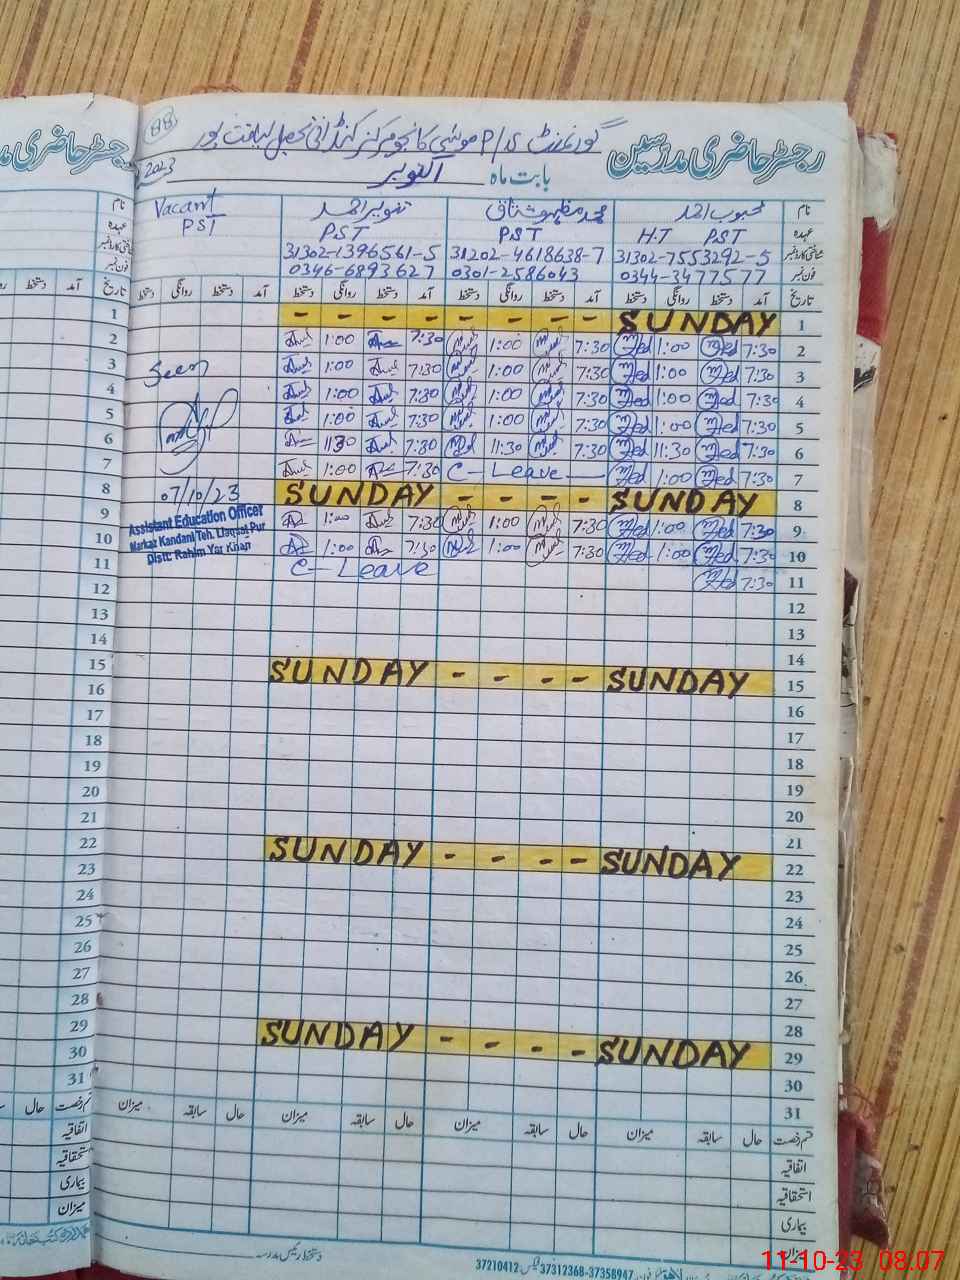 88
گورنمنٹ P/S موسیٰ کانجو مرکز کنڈانی تحصیل لیاقت پور
رجسٹر حاضری مدرسین
2023
بابت ماہ اکتوبر
نام محبوب احمد محمد مظہر مشتاق تنویر احمد Vacant
عہدہ H.T PST PST PST PST
شناختی کارڈ نمبر 31302-7553292-5 31202-4618638-7 31302-1396561-5
فون نمبر 0344-3477577 0301-2586043 0346-6893627
تاریخ آمد دستخط روانگی دستخط آمد دستخط روانگی دستخط آمد دستخط روانگی دستخط آمد دستخط روانگی دستخط تاریخ
1 - - - - - - - - SUNDAY 1
2 1:00 7:30 1:00 7:30 1:00 7:30 2
3 1:00 7:30 1:00 7:30 1:00 7:30 3
4 1:00 7:30 1:00 7:30 1:00 7:30 4
5 1:00 7:30 1:00 7:30 1:00 7:30 5
6 11:30 7:30 11:30 7:30 11:30 7:30 6
7 1:00 7:30 C-Leave 1:00 7:30 7
8 SUNDAY - - - - SUNDAY 8
9 1:00 7:30 1:00 7:30 1:00 7:30 9
10 1:00 7:30 1:00 7:30 1:00 7:30 10
11 C-Leave 7:30 11
Seen
07/10/23
Assistant Education Officer
Markaz Kandani Teh. Liaqat Pur
Distt: Rahim Yar Khan
12 12
13 13
14 14
15 SUNDAY - - - - SUNDAY 15
16 16
17 17
18 18
19 19
20 20
21 21
22 SUNDAY - - - - SUNDAY 22
23 23
24 24
25 25
26 26
27 27
28 28
29 SUNDAY - - - - SUNDAY 29
30 30
31 31
قسم رخصت حال سابقہ میزان حال سابقہ میزان حال سابقہ میزان حال سابقہ میزان قسم رخصت
اتفاقیہ اتفاقیہ
استحقاقیہ استحقاقیہ
بیماری بیماری
میزان میزان
دستخط رئیس مدرسہ
فون: 37358947-37312368 فیکس: 37210412
11-10-23 08.07